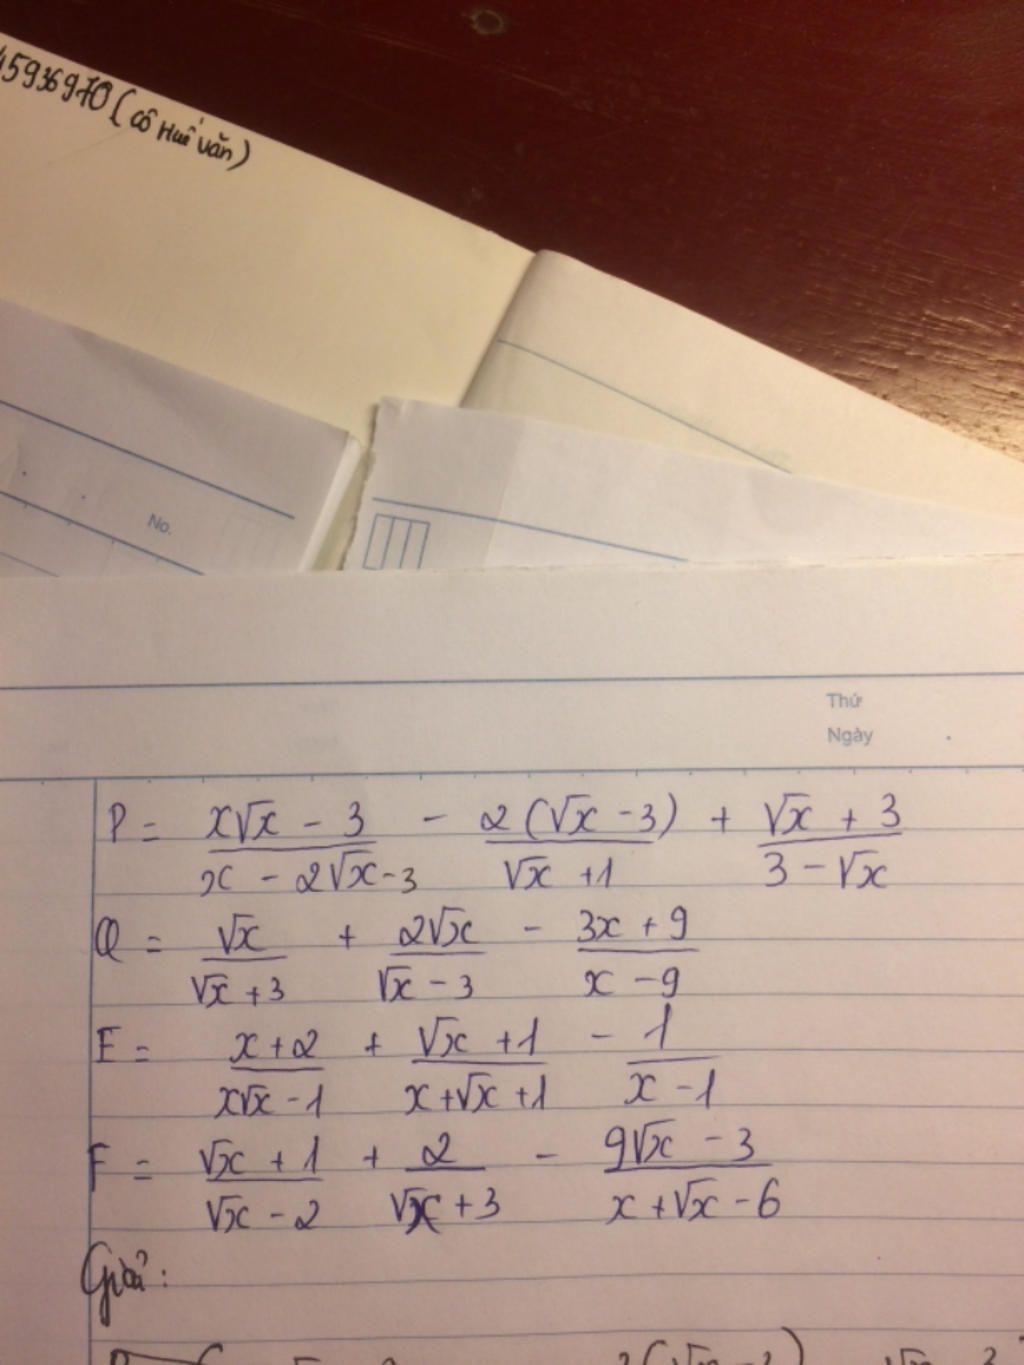 45936970 (cô Huế văn)
No.
Thứ
Ngày
P = \frac{x\sqrt{x} - 3}{x - 2\sqrt{x} - 3} - \frac{2(\sqrt{x} - 3)}{\sqrt{x} + 1} + \frac{\sqrt{x} + 3}{3 - \sqrt{x}}
Q = \frac{\sqrt{x}}{\sqrt{x} + 3} + \frac{2\sqrt{x}}{\sqrt{x} - 3} - \frac{3x + 9}{x - 9}
E = \frac{x + 2}{x\sqrt{x} - 1} + \frac{\sqrt{x} + 1}{x + \sqrt{x} + 1} - \frac{1}{x - 1}
F = \frac{\sqrt{x} + 1}{\sqrt{x} - 2} + \frac{2}{\sqrt{x} + 3} - \frac{9\sqrt{x} - 3}{x + \sqrt{x} - 6}
Giải :